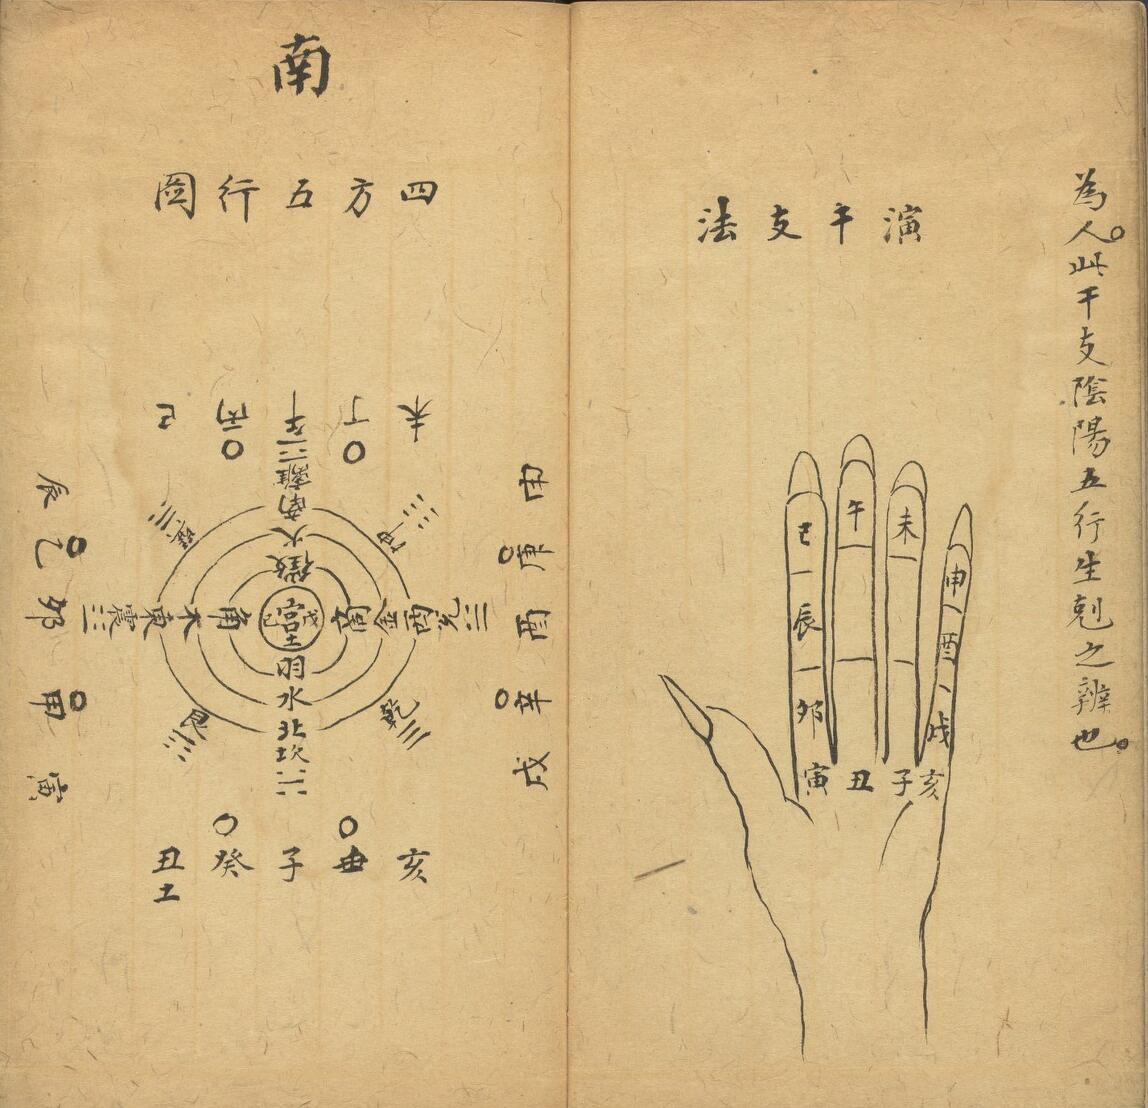 為人此干支陰陽五行生剋之辨也
演干支法
巳
午
未
申
辰
酉
卯
戌
寅丑子亥
南
四方五行圖
未丁午丙巳
離南火徵
巽
坤
辰乙卯甲寅
申庚酉辛戌
震東木角
己宮戊
土
商金西兌
羽水北坎
艮
乾
亥壬子癸丑
土